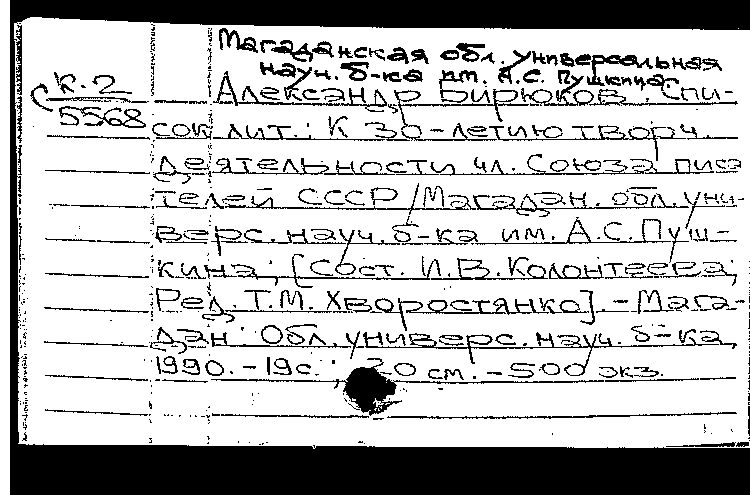 Магаданская обл. универсальная
науч. б-ка им. А.С. Пушкина.
К.2
5568
Александр Бирюков. Спи-
сок лит.: К 30-летию творч.
деятельности чл. Союза писа
телей СССР / Магадан. обл. уни-
верс. науч. б-ка им. А.С. Пуш-
кина; [Сост. И.В. Колонтеева;
Ред. Т.М. Хворостянко]. - Мага-
дан: Обл. универс. науч. б-ка,
1990. - 19с.; 20 см. - 500 экз.